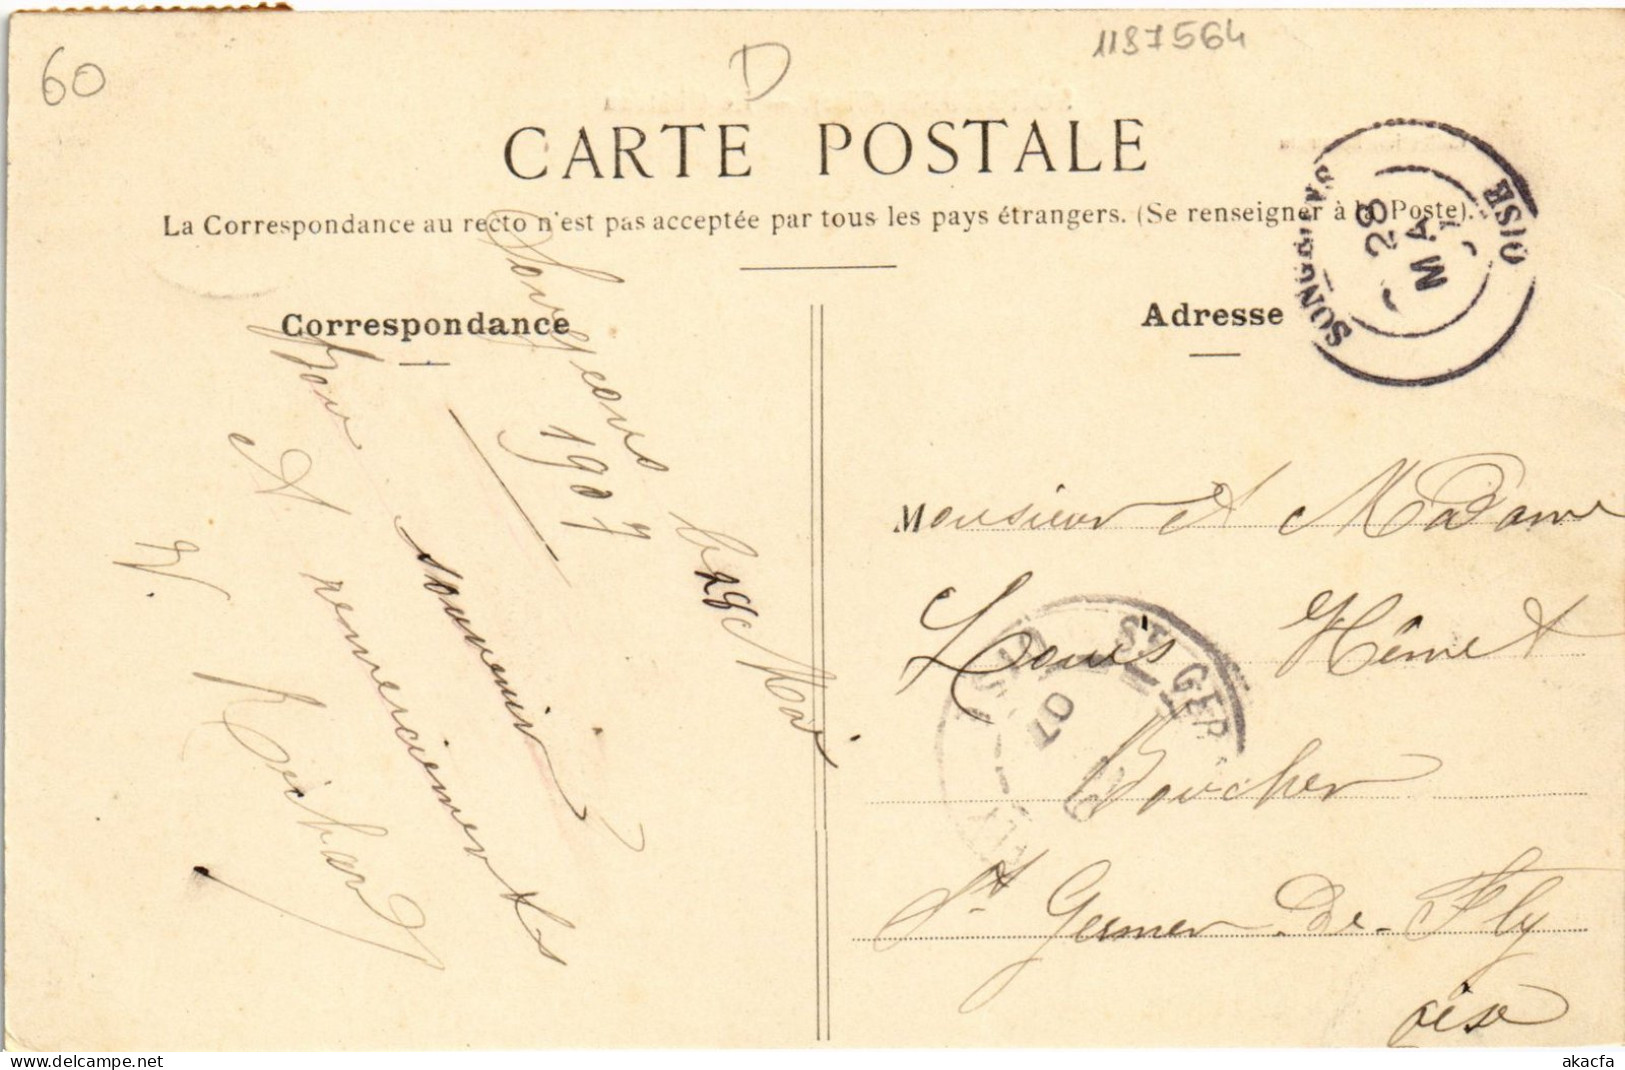 60
D
1187564
CARTE POSTALE
La Correspondance au recto n'est pas acceptée par tous les pays étrangers. (Se renseigner à la Poste).
Correspondance
Adresse
SONGEONS
OISE
28
MAI
Songeons le 28 Mai
1907
Bon souvenir
et remerciements
V. Richard
Monsieur et Madame
Louis Hémet
Boucher
St Germer-de-Fly
oise
ST GER
07
akacfa